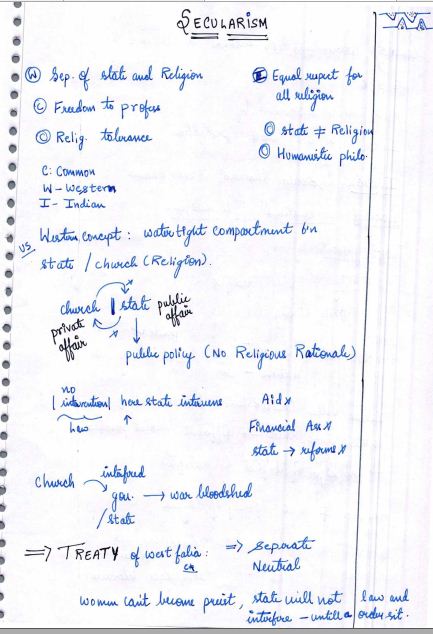 SECULARISM
(W) Sep. of state and Religion
(I) Equal rupect for
all religion
(C) Freedom to profess
(C) Relig. tolerance
(C) state ≠ Religion
(C) Humanistic philo.
C: Common
W - Western
I - Indian
Western concept : water tight compartment b/n
US
state / church (Religion).
church | state public
affair
private
affair
public policy (No Religious Rationale)
no
| intervention | here state intervens Aid x
law ↑
Financial Ass x
state → reforms x
church interfred
gov. → war bloodshed
/state
⇒ TREATY of west falia : ⇒ Separate
Neutral
women can't become preist, state will not law and
interfere - untill a order sit.